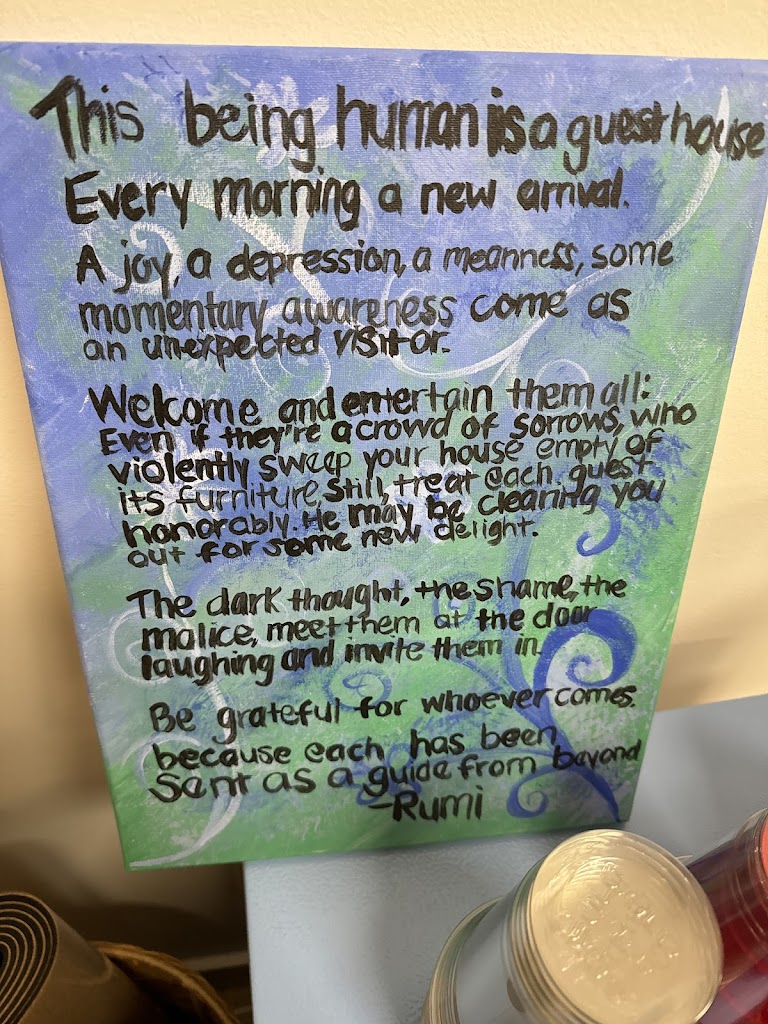 This being human is a guest house
Every morning a new arrival.
A joy, a depression, a meanness, some
momentary awareness come as
an unexpected visitor.
Welcome and entertain them all:
Even if they're a crowd of sorrows, who
violently sweep your house empty of
its furniture, still, treat each guest
honorably. He may be clearing you
out for some new delight.
The dark thought, the shame, the
malice, meet them at the door
laughing and invite them in.
Be grateful for whoever comes.
because each has been
sent as a guide from beyond
-Rumi